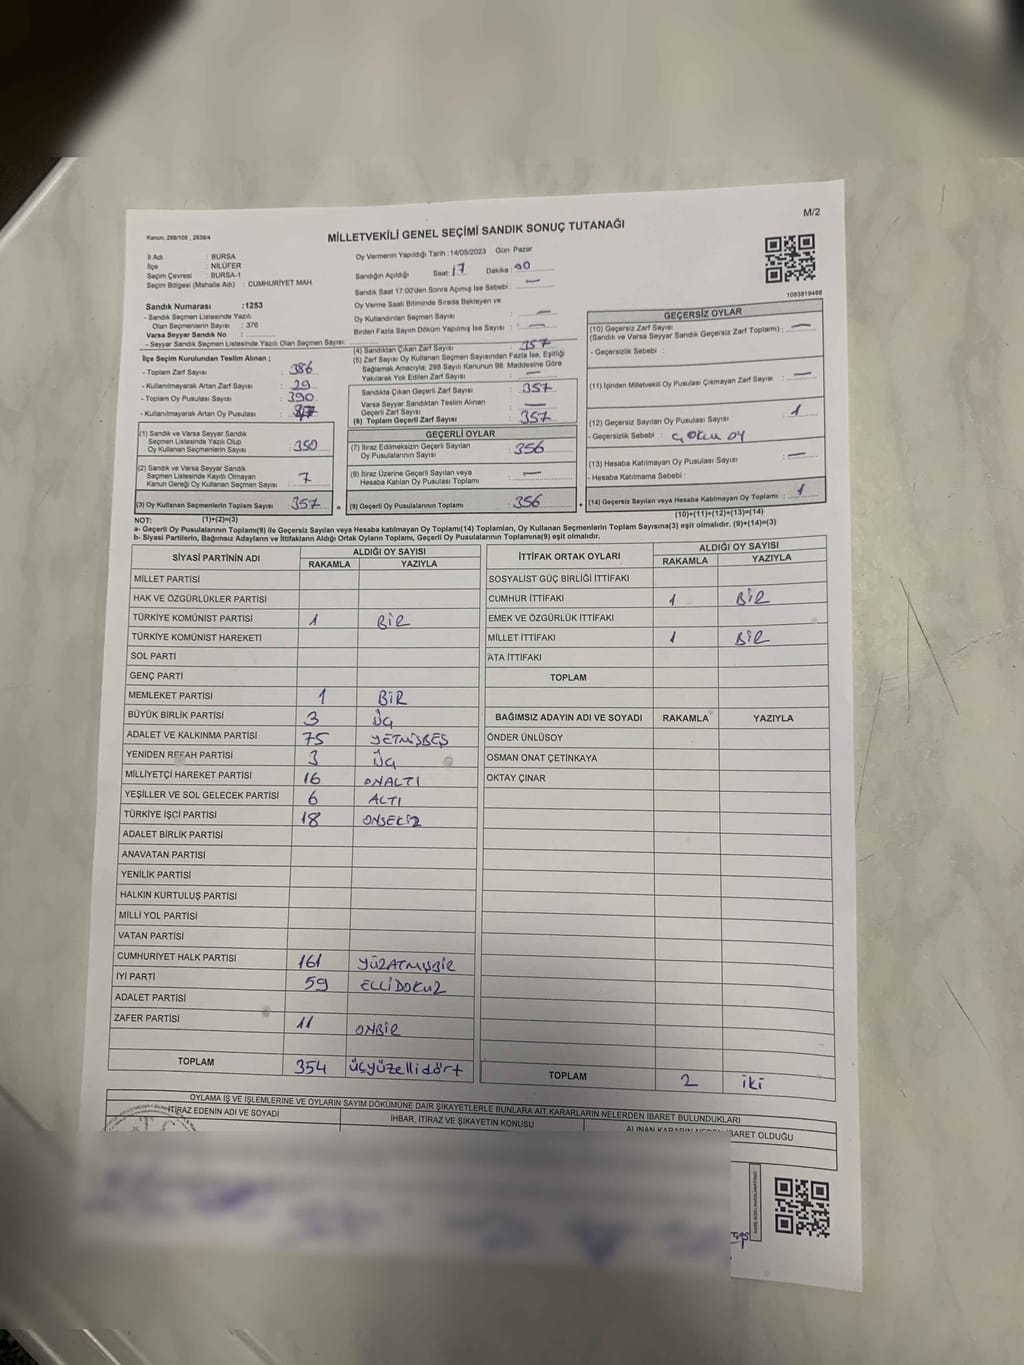 M/2
Kanun: 298/105 , 2839/4
MİLLETVEKİLİ GENEL SEÇİMİ SANDIK SONUÇ TUTANAĞI
İl Adı : BURSA
İlçe : NİLÜFER
Seçim Çevresi : BURSA-1
Seçim Bölgesi (Mahalle Adı) : CUMHURİYET MAH.
Sandık Numarası :1253
- Sandık Seçmen Listesinde Yazılı
Olan Seçmenlerin Sayısı : 376
Varsa Seyyar Sandık No :
- Seyyar Sandık Seçmen Listesinde Yazılı Olan Seçmen Sayısı:
Oy Vermenin Yapıldığı Tarih :14/05/2023 Gün Pazar
Sandığın Açıldığı Saat: 17 Dakika: 00
Sandık Saat 17:00'den Sonra Açmış İse Sebebi : —
Oy Verme Saati Bitiminde Sırada Bekleyen ve
Oy Kullandırılan Seçmen Sayısı : —
Birden Fazla Sayım Döküm Yapılmış İse Sayısı : —
1083819468
İlçe Seçim Kurulundan Teslim Alınan ;
- Toplam Zarf Sayısı : 386
- Kullanılmayarak Artan Zarf Sayısı : 29
- Toplam Oy Pusulası : 390
- Kullanılmayarak Artan Oy Pusulası :
(1) Sandık ve Varsa Seyyar Sandık
Seçmen Listesinde Yazılı Olup
Oy Kullanan Seçmenlerin Sayısı : 350
(2) Sandık ve Varsa Seyyar Sandık
Seçmen Listesinde Kayıtlı Olmayan
Kanun Gereği Oy Kullanan Seçmen Sayısı : 7
(3) Oy Kullanan Seçmenlerin Toplam Sayısı : 357
(1)+(2)=(3)
(4) Sandıktan Çıkan Zarf Sayısı : 357
(5) Zarf Sayısı Oy Kullanan Seçmen Sayısından Fazla İse, Eşitliği
Sağlamak Amacıyla; 298 Sayılı Kanunun 98. Maddesine Göre
Yakılarak Yok Edilen Zarf Sayısı : —
Sandıkta Çıkan Geçerli Zarf Sayısı : 357
Varsa Seyyar Sandıktan Teslim Alınan
Geçerli Zarf Sayısı : —
(6) Toplam Geçerli Zarf Sayısı : 357
GEÇERLİ OYLAR
(7) İtiraz Edilmeksizin Geçerli Sayılan
Oy Pusulalarının Sayısı : 356
(8) İtiraz Üzerine Geçerli Sayılan veya
Hesaba Katılan Oy Pusulası Toplamı : —
= (9) Geçerli Oy Pusulalarının Toplamı : 356
GEÇERSİZ OYLAR
(10) Geçersiz Zarf Sayısı
(Sandık ve Varsa Seyyar Sandık Geçersiz Zarf Toplamı) : —
- Geçersizlik Sebebi :
(11) İçinden Milletvekili Oy Pusulası Çıkmayan Zarf Sayısı : —
(12) Geçersiz Sayılan Oy Pusulası Sayısı : 1
- Geçersizlik Sebebi :
(13) Hesaba Katılmayan Oy Pusulası Sayısı : —
- Hesaba Katılmama Sebebi :
+ (14) Geçersiz Sayılan veya Hesaba Katılmayan Oy Toplamı : 1
(10)+(11)+(12)+(13)=(14)
NOT:
a- Geçerli Oy Pusulalarının Toplamı(9) ile Geçersiz Sayılan veya Hesaba katılmayan Oy Toplamı(14) Toplamları, Oy Kullanan Seçmenlerin Toplam Sayısına(3) eşit olmalıdır. (9)+(14)=(3)
b- Siyasi Partilerin, Bağımsız Adayların ve İttifakların Aldığı Ortak Oyların Toplamı, Geçerli Oy Pusulalarının Toplamına(9) eşit olmalıdır.
SİYASİ PARTİNİN ADI ALDIĞI OY SAYISI
RAKAMLA YAZIYLA
MİLLET PARTİSİ
HAK VE ÖZGÜRLÜKLER PARTİSİ
TÜRKİYE KOMÜNİST PARTİSİ 1 BİR
TÜRKİYE KOMÜNİST HAREKETİ
SOL PARTİ
GENÇ PARTİ
MEMLEKET PARTİSİ 1 BİR
BÜYÜK BİRLİK PARTİSİ 3 ÜÇ
ADALET VE KALKINMA PARTİSİ 75 YETMİŞBEŞ
YENİDEN REFAH PARTİSİ 3 ÜÇ
MİLLİYETÇİ HAREKET PARTİSİ 16 ONALTI
YEŞİLLER VE SOL GELECEK PARTİSİ 6 ALTI
TÜRKİYE İŞÇİ PARTİSİ 18 ONSEKİZ
ADALET BİRLİK PARTİSİ
ANAVATAN PARTİSİ
YENİLİK PARTİSİ
HALKIN KURTULUŞ PARTİSİ
MİLLİ YOL PARTİSİ
VATAN PARTİSİ
CUMHURİYET HALK PARTİSİ 161 YÜZATMIŞBİR
İYİ PARTİ 59 ELLİDOKUZ
ADALET PARTİSİ
ZAFER PARTİSİ 11 ONBİR
TOPLAM 354 üçyüzellidört
İTTİFAK ORTAK OYLARI ALDIĞI OY SAYISI
RAKAMLA YAZIYLA
SOSYALİST GÜÇ BİRLİĞİ İTTİFAKI
CUMHUR İTTİFAKI 1 BİR
EMEK VE ÖZGÜRLÜK İTTİFAKI
MİLLET İTTİFAKI 1 BİR
ATA İTTİFAKI
TOPLAM
BAĞIMSIZ ADAYIN ADI VE SOYADI RAKAMLA YAZIYLA
ÖNDER ÜNLÜSOY
OSMAN ONAT ÇETİNKAYA
OKTAY ÇINAR
TOPLAM 2 iki
OYLAMA İŞ VE İŞLEMLERİNE VE OYLARIN SAYIM DÖKÜMÜNE DAİR ŞİKAYETLERLE BUNLARA AİT KARARLARIN NELERDEN İBARET BULUNDUKLARI
İTİRAZ EDENİN ADI VE SOYADI
İHBAR, İTİRAZ VE ŞİKAYETİN KONUSU
ALINAN KARARIN NEDEN İBARET OLDUĞU